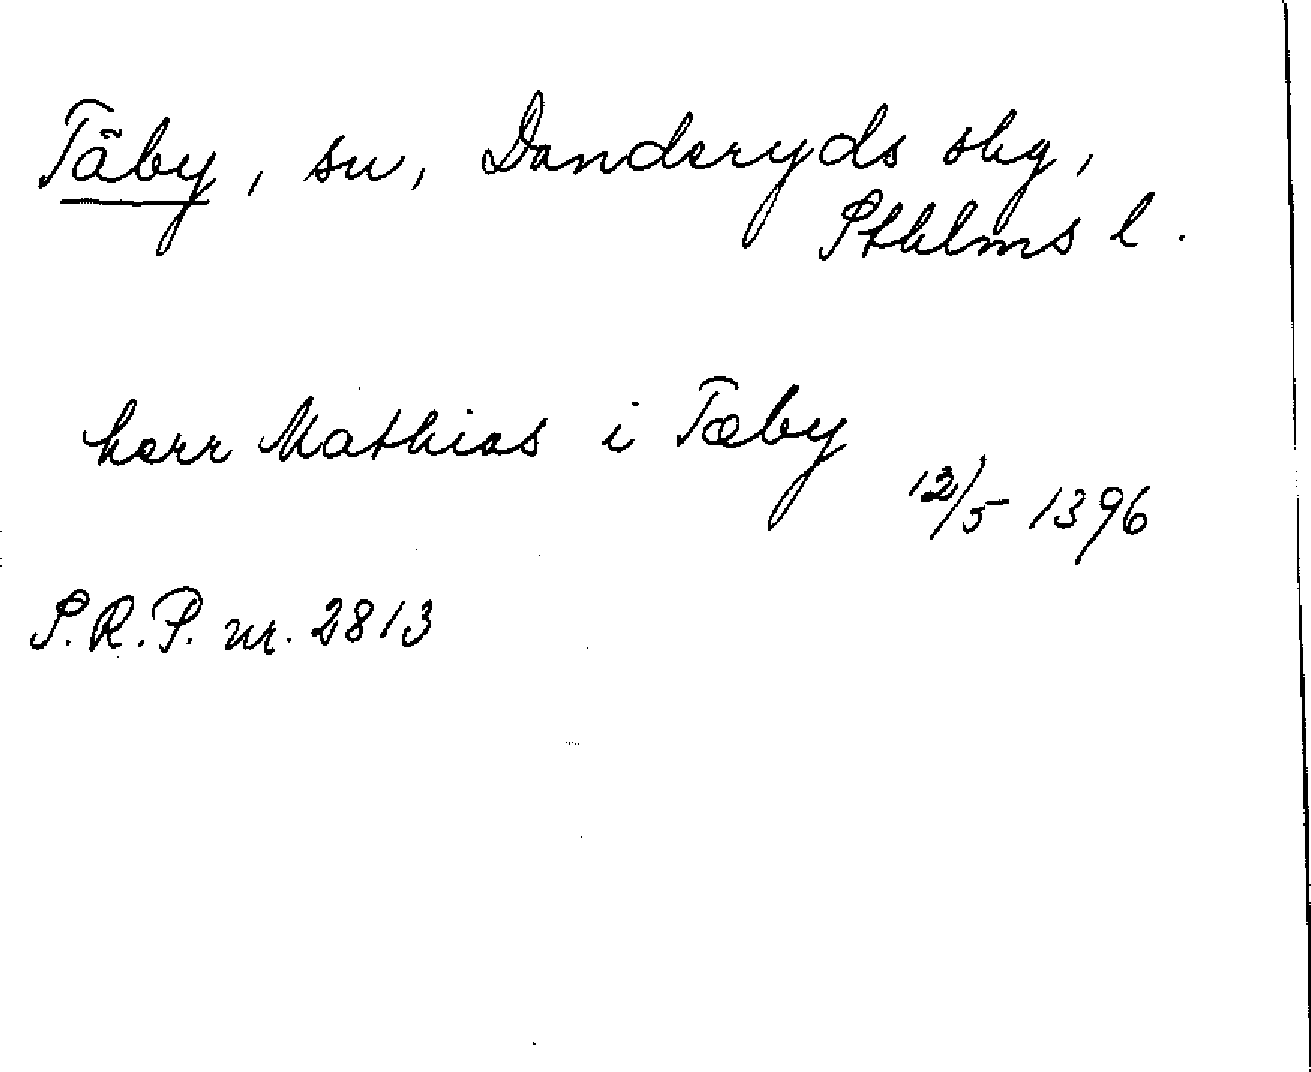 Täby, sn, Danderyds skg,
Sthlms l.
herr Mathias i Tæby
12/5 1396
S.R.P. nr. 2813